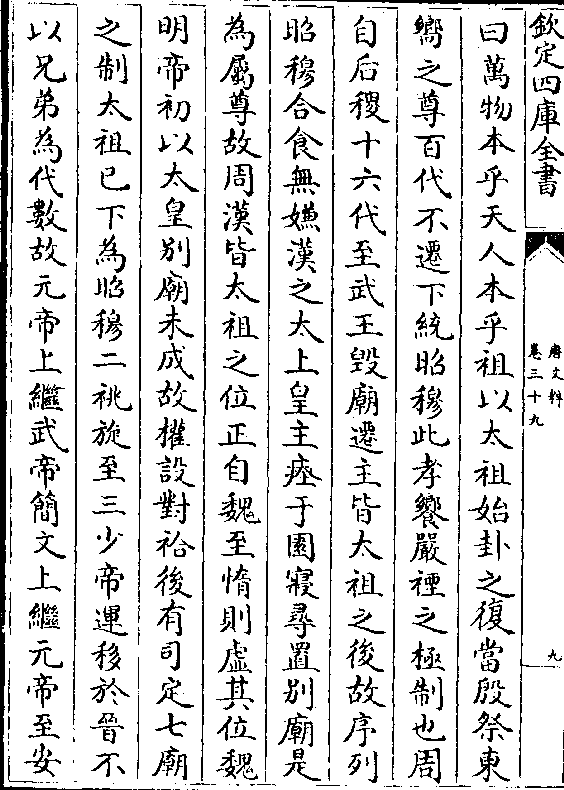 欽定四庫全書
唐文粹
卷三十九
九
曰萬物本乎天人本乎祖以太祖始卦之復當殷祭東
嚮之尊百代不遷下統昭穆此孝饗嚴禋之極制也周
自后稷十六代至武王毀廟遷主皆太祖之後故序列
昭穆合食無嫌漢之太上皇主瘞于園寢尋置别廟是
為屬尊故周漢皆太祖之位正自魏至惰則虚其位魏
明帝初以太皇别廟未成故權設對祫後有司定七廟
之制太祖已下為昭穆二祧旋至三少帝運移於晉不
以兄弟為代數故元帝上繼武帝簡文上繼元帝至安